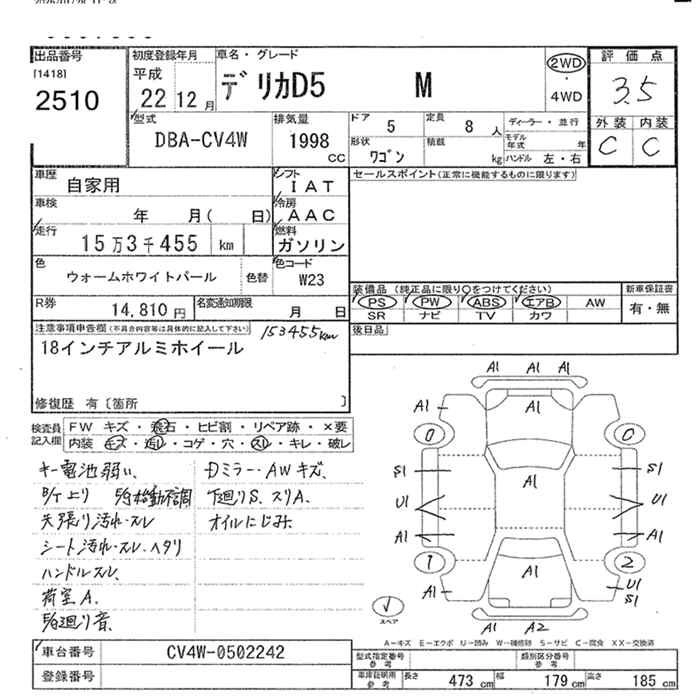 出品番号
[1418]
2510
初度登録年月
平成
22年 12月
車名・グレード
デリカD5 M
2WD
・
4WD
評価点
3.5
外装 内装
C C
型式
DBA-CV4W
排気量
1998
CC
ドア 5
定員 8 人
ディーラー・並行
形状
ワゴン
積載 kg
モデル年式 年
ハンドル 左・右
車歴
自家用
シフト
IAT
セールスポイント(正常に機能するものに限ります)
車検
年 月( 日)
冷房
AAC
走行
15万3千455 km
燃料
ガソリン
色
ウォームホワイトパール
色替
色コード
W23
装備品 (純正品に限り○をつけてください)
新車保証書
PS PW ABS エアB AW
有・無
SR ナビ TV カワ
R券
14,810円
名変通知期限
月 日
後日品
注意事項申告欄(不具合内容等は具体的に記入して下さい)
153455km
18インチアルミホイール
修復歴 有〔箇所 〕
検査員記入欄
FW キズ・飛石・ヒビ割・リペア跡・×要
内装 キズ・汚レ・コゲ・穴・スレ・キレ・破レ
キー電池弱い、
Dミラー・AWキズ、
下廻りS、スリA、
天張り汚れ・スレ
オイルにじみ、
シート汚れ・スレ、ヘタリ
ハンドルスレ、
荷室A、
A1 A1 A1
A1 A1 A1
0 0
S1 A1 S1
U1 U1
A1 A1
1 A1 2
A1 U1
S1
スペア
A1 A2
A－キズ E－エクボ U－凹み W－補修跡 S－サビ C－腐食 XX－交換済
車台番号
CV4W-0502242
登録番号
型式指定番号
参考
類別区分番号
参考
車庫証明用
参考
長さ 473 cm
幅 179 cm
高さ 185 cm